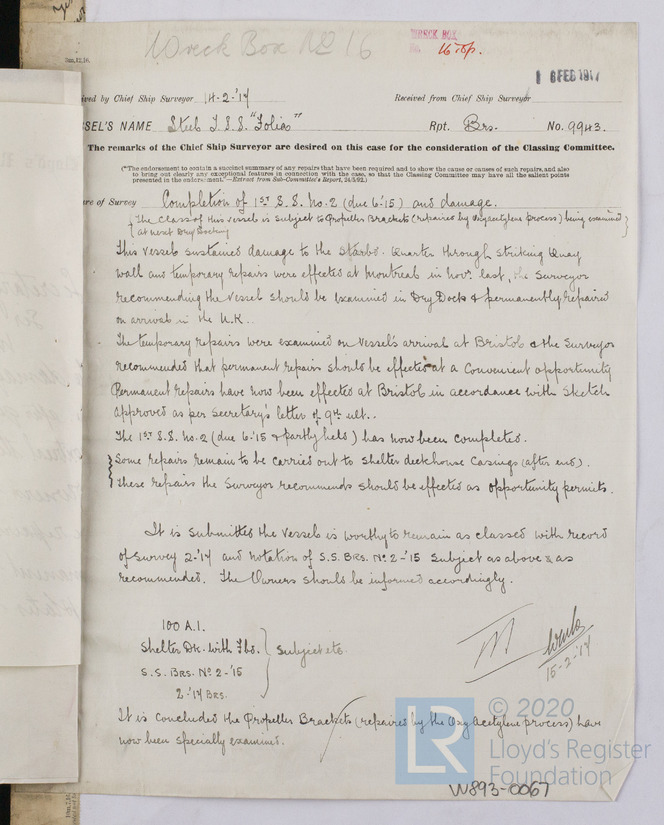 Wreck Box No 16
WRECK BOX
16 Top.
16 FEB 1917
ived by Chief Ship Surveyor 14-2-'17 Received from Chief Ship Surveyor
SSEL'S NAME Steel T.S.S. "Folia" Rpt. Brs. No. 9943.
The remarks of the Chief Ship Surveyor are desired on this case for the consideration of the Classing Committee.
(*The endorsement to contain a succinct summary of any repairs that have been required and to show the cause or causes of such repairs, and also
to bring out clearly any exceptional features in connection with the case, so that the Classing Committee may have all the salient points
presented in the endorsement."—Extract from Sub-Committee's Report, 24/5/92.)
ure of Survey Completion of 1st S.S. No. 2 (due 6-15) and damage.
The class of this vessel is subject to Propeller Brackets (repaired by Oxyacetylene process) being examined
at next Dry Docking
This vessel sustained damage to the starbd. quarter through striking Quay
wall and temporary repairs were effected at Montreal in Novr. last, the Surveyor
recommending the vessel should be examined in Dry Dock & permanently repaired
on arrival in the U.K..
The temporary repairs were examined on vessel's arrival at Bristol & the Surveyor
recommended that permanent repairs should be effected at a convenient opportunity
Permanent repairs have now been effected at Bristol in accordance with sketch
approved as per Secretary's letter of 9th ult..
The 1st S.S. No. 2 (due 6-'15 & partly held) has now been completed.
Some repairs remain to be carried out to shelter deckhouse casings (after end).
These repairs the Surveyor recommends should be effected as opportunity permits.
It is submitted the vessel is worthy to remain as classed with record
of survey 2-'17 and notation of S.S. Brs. No 2-'15 subject as above & as
recommended. The Owners should be informed accordingly.
100 A.1.
Shelter Dk. with Fbd. Subject etc
S.S. Brs. No 2-'15
2-'17 Brs.
15-2-'17
It is concluded the Propeller Brackets (repaired by the Oxy acetylene process) have
now been specially examined.
© 2020
LR Lloyd's Register
Foundation
W893-0067